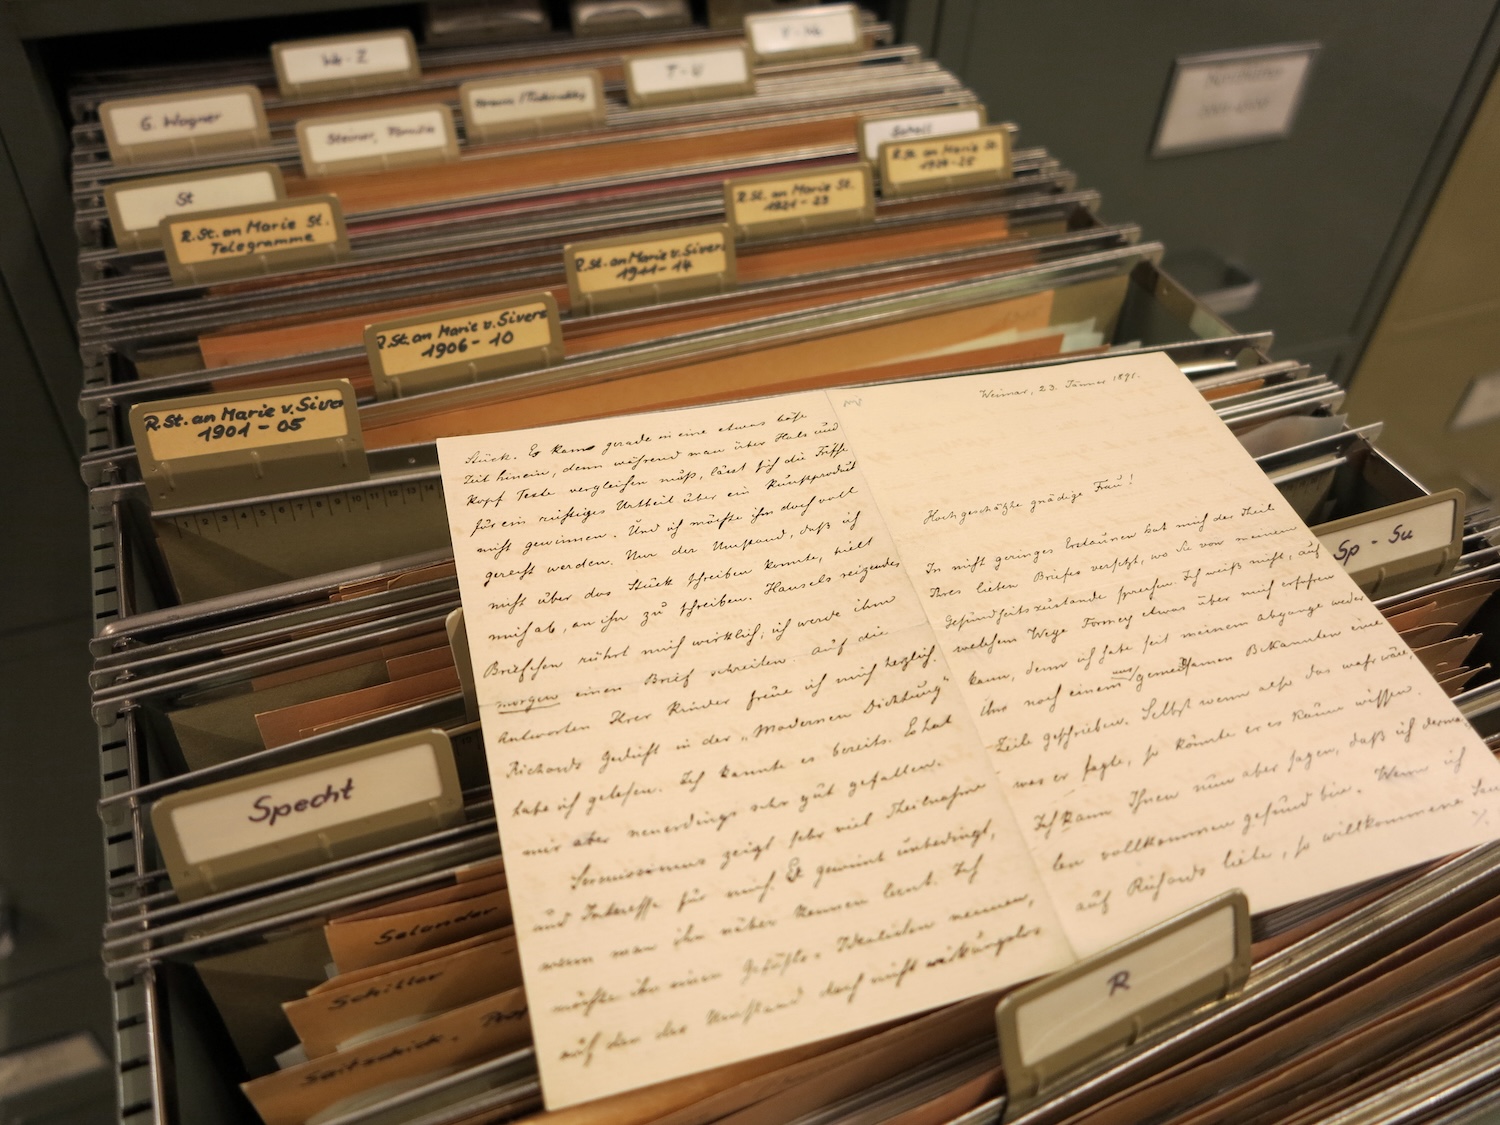 G. Wagner
Steiner, Familie
T - V
St
R. St. an Marie St.
Telegramme
R. St. an Marie St.
1924-25
R. St. an Marie St.
1921-23
R. St. an Marie v. Sivers
1911-14
R. St. an Marie v. Sivers
1906-10
R. St. an Marie v. Sivers
1901-05
1 2 3 4 5 6 7 8 9 10 11 12 13 14
Sp - Su
Specht
Schiller
R
Stück. Es kam gerade in eine etwas böse
Zeit hinein, denn während man über Hals und
Kopf Texte vergleichen muß, lässt sich die Frische
für ein richtiges Urtheil über ein Kunstproduct
nicht gewinnen. Und ich möchte ihm doch voll
gerecht werden. Nur der Umstand, daß ich
nicht über das Stück schreiben konnte, hielt
mich ab, an ihn zu schreiben. Hansels reizendes
Briefchen rührt mich wirklich; ich werde ihm
morgen einen Brief schreiben. Auf die
Antworten Ihrer Kinder freue ich mich herzlich.
Richards Gedicht in der „Modernen Dichtung"
habe ich gelesen. Ich kannte es bereits. Es hat
mir aber neuerdings sehr gut gefallen.
Serenissimus zeigt sehr viel Theilnahme
und Interesse für mich. Er gewinnt unbedingt,
wenn man ihn näher kennen lernt. Ich
möchte ihn einen Gefühls-Idealisten nennen,
auf den der Umstand doch nicht wirkungslos
Weimar, 23. Jänner 1891.
Hochgeschätzte gnädige Frau!
In nicht geringes Erstaunen hat mich der Theil
Ihres lieben Briefes versetzt, wo Sie von meinem
Gesundheitszustande sprechen. Ich weiß nicht, auf
welchem Wege Formey etwas über mich erfahren
kann, denn ich habe seit meinem Abgange weder
ihm noch einem uns gemeinsamen Bekannten eine
Zeile geschrieben. Selbst wenn also das wahr wäre,
was er sagte, so könnte er es kaum wissen.
Ich kann Ihnen nun aber sagen, daß ich derma-
len vollkommen gesund bin. Wenn ich
auf Richards liebe, so willkommene